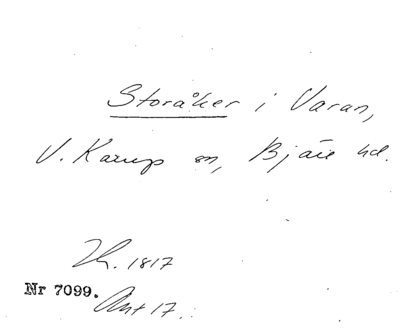 Storåker i Varan,
V. Karup sn, Bjäre hd.
Th. 1817
Nr 7099.
Ant 17.